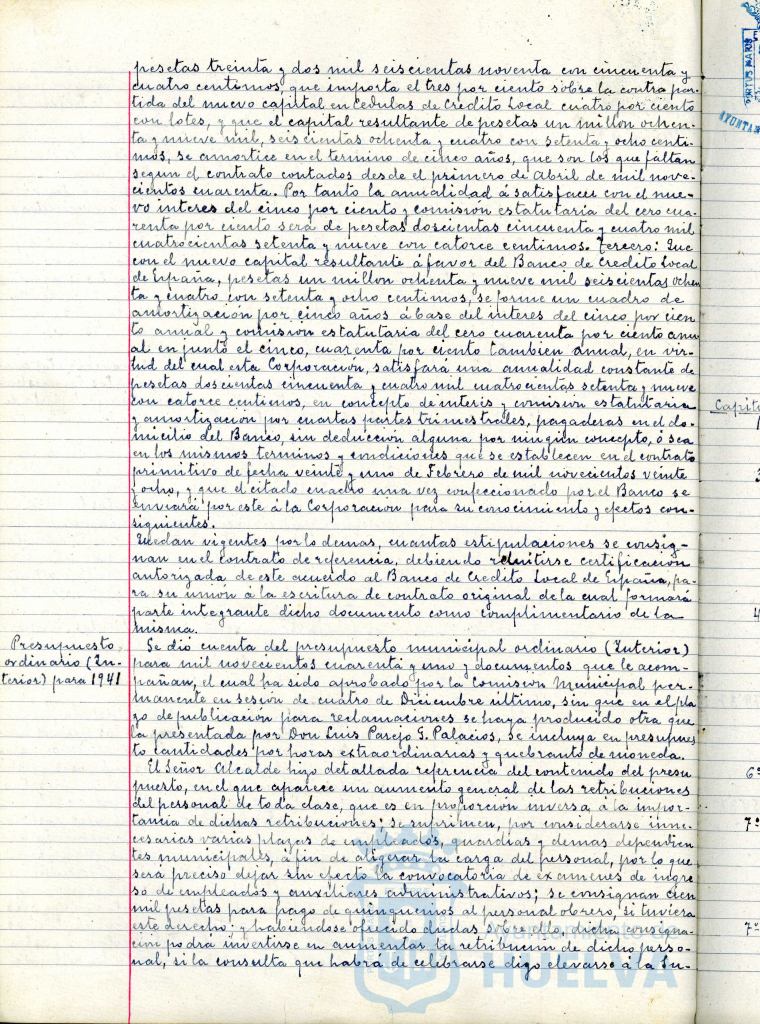 pesetas treinta y dos mil seiscientas noventa con cincuenta y
cuatro centimos, que importa el tres por ciento sobre la contra par-
tida del nuevo capital en cedulas de Crédito Local cuatro por ciento
con lotes, y que el capital resultante de pesetas un millon ochen-
ta y nueve mil, seiscientas ochenta y cuatro con setenta y ocho centi-
mos, se amortice en el termino de cinco años, que son los que faltan
segun el contrato contados desde el primero de Abril de mil nove-
cientos cuarenta. Por tanto la anualidad á satisfacer con el nue-
vo interes del cinco por ciento y comisión estatutaria del cero cua-
renta por ciento será de pesetas doscientas cincuenta y cuatro mil
cuatrocientas setenta y nueve con catorce centimos. Tercero: Que
con el nuevo capital resultante á favor del Banco de Credito Local
de España, pesetas un millon ochenta y nueve mil seiscientas ochen
ta y cuatro con setenta y ocho centimos, se forme un cuadro de
amortización por cinco años á base del interes del cinco por cien-
to anual y comision estatutaria del cero cuarenta por ciento anu-
al en junto el cinco, cuarenta por ciento tambien anual, en vir-
tud del cual esta Corporación, satisfará una anualidad constante de
pesetas doscientas cincuenta y cuatro mil cuatrocientas setenta y nueve
con catorce centimos, en concepto de interés y comision estatutaria
y amortización por cuartas partes trimestrales, pagaderas en el do-
micilio del Banco, sin deducción alguna por ningún concepto, ó sea
en los mismos terminos y condiciones que se establecen en el contrato
primitivo de fecha veinte y uno de Febrero de mil novecientos veinte
y ocho, y que el citado cuadro una vez confeccionado por el Banco se
enviará por este á la Corporacion para su conocimiento y efectos con-
siguientes.
Quedan vigentes por lo demas, cuantas estipulaciones se consig-
nan en el contrato de referencia, debiendo remitirse certificación
autorizada, de este acuerdo al Banco de Credito Local de España, pa-
ra su unión á la escritura de contrato original de la cual formará
parte integrante dicho documento como complimentario de la
misma.
Presupuesto
ordinario (In-
terior) para 1941
Se dió cuenta del presupuesto municipal ordinario (Interior)
para mil novecientos cuarenta y uno y documentos que le acom-
pañan, el cual ha sido aprobado por la Comisión Municipal per-
manente en sesion de cuatro de Diciembre último, sin que en el pla-
zo de publicación para reclamaciones se haya producido otra que
la presentada por Don Luis Parejo G. Palacios, se incluya en presupues
to cantidades por horas extraordinarias y quebranto de moneda.
El Señor Alcalde hizo detallada referencia del contenido del presu
puesto, en el que aparece un aumento general de las retribuciones
del personal de toda clase, que es en proporción inversa á la impor-
tancia de dichas retribuciones; se suprimen, por considerarse inne-
cesarias varias plazas de empleados, guardias y demas dependien
tes municipales, á fin de aligerar la carga del personal, por lo que
será preciso dejar sin efecto la convocatoria de examenes de ingre
so de empleados y auxiliares administrativos; se consignan cien
mil pesetas para pago de quinquenios al personal obrero, si tuviera
este derecho; y habiendose ofrecido dudas sobre ello, dicha consigna-
ción podrá invertirse en aumentar la retribucion de dicho perso-
nal, si la consulta que habrá de celebrarse digo elevarse á la Su-
Ayuntamiento de
HUELVA
Capit
6º
7º
7º